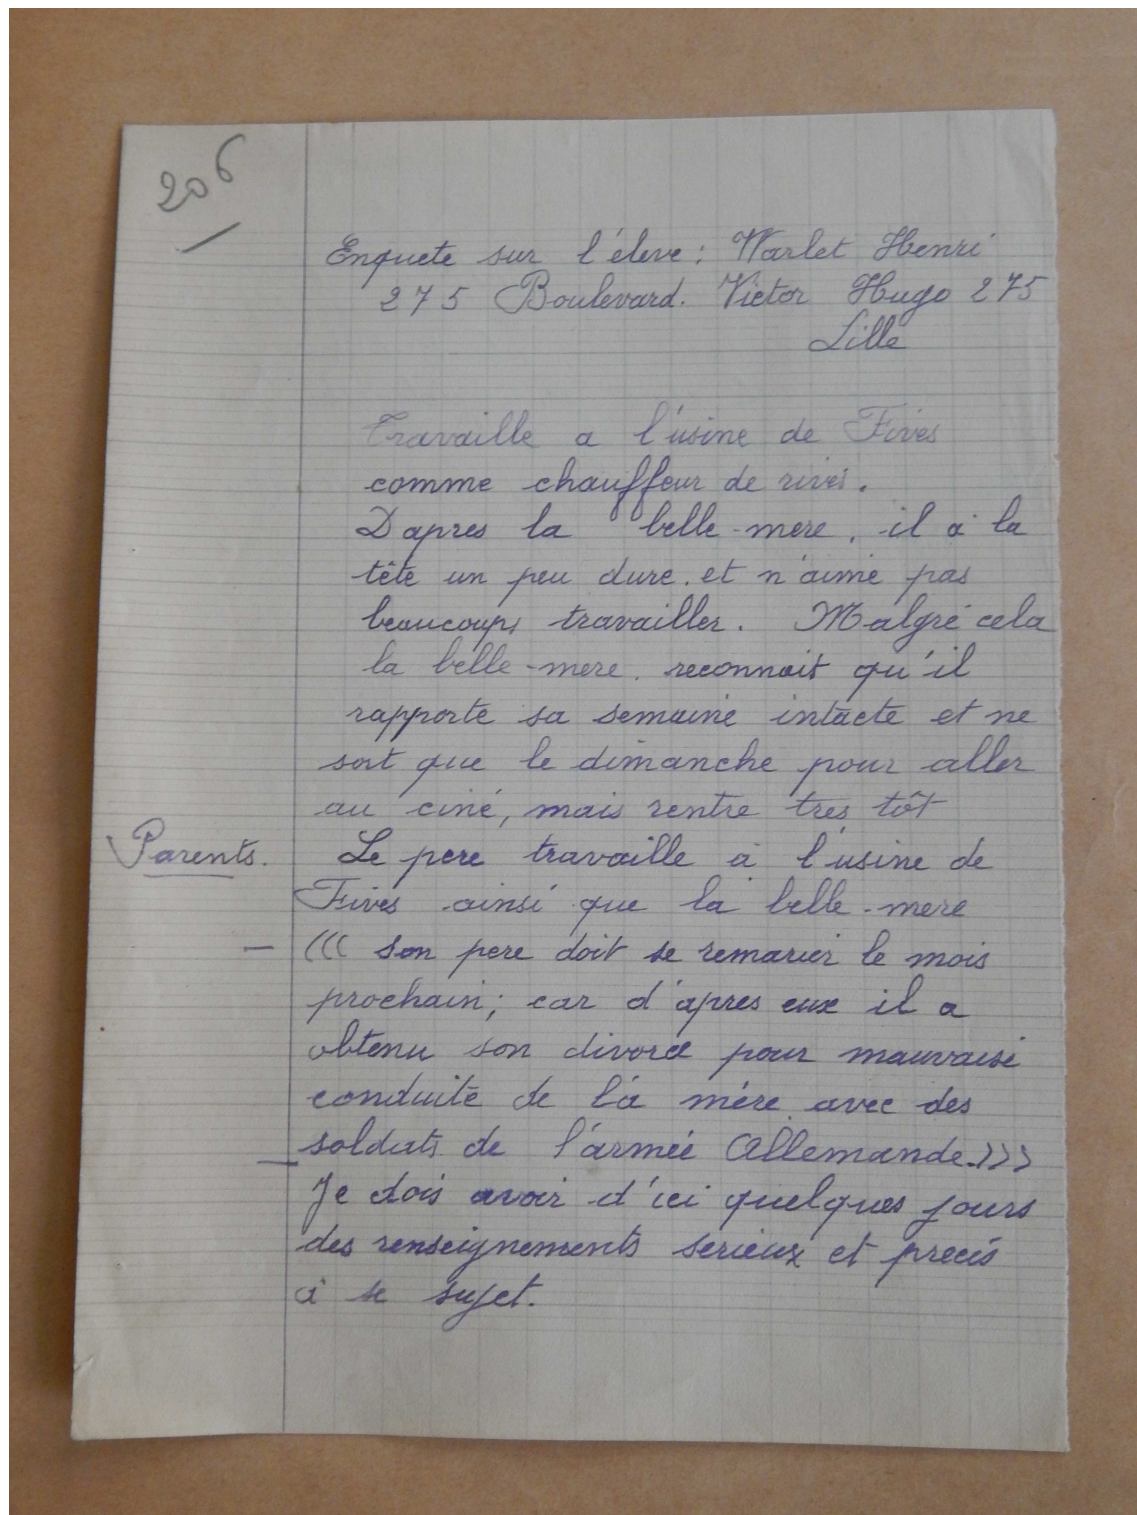 206
Enquete sur l'éleve : Warlet Henri
275 Boulevard. Victor Hugo 275
Lille
Travaille a l'usine de Fives
comme chauffeur de rives.
D'apres la belle-mere, il à la
tête un peu dure, et n'aime pas
beaucoups travailler. Malgré cela
la belle-mere. reconnait qu'il
rapporte sa semaine intacte et ne
sort que le dimanche pour aller
au ciné, mais rentre tres tôt
Parents. Le pere travaille à l'usine de
Fives ainsi que la belle-mere
— ((( son pere doit se remarier le mois
prochain; car d'apres eux il a
obtenu son divorce pour mauvaise
conduite de la mère avec des
— soldats de l'armée Allemande.)))
Je dois avoir d'ici quelques jours
des renseignements serieux et precis
à se sujet.